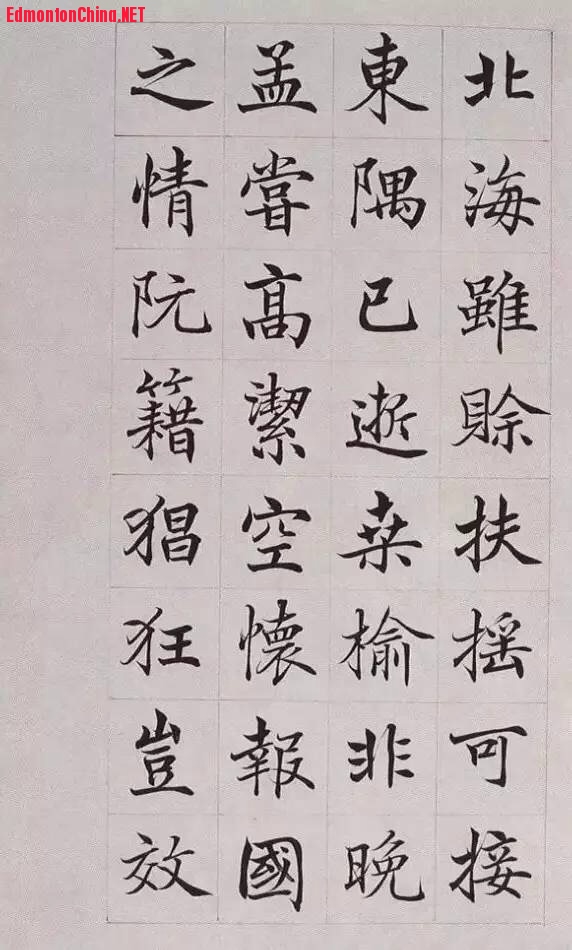 EdmontonChina.NET
北海雖賒扶摇可接
東隅已逝桒榆非晚
孟嘗髙潔空懷報國
之情阮籍猖狂豈效